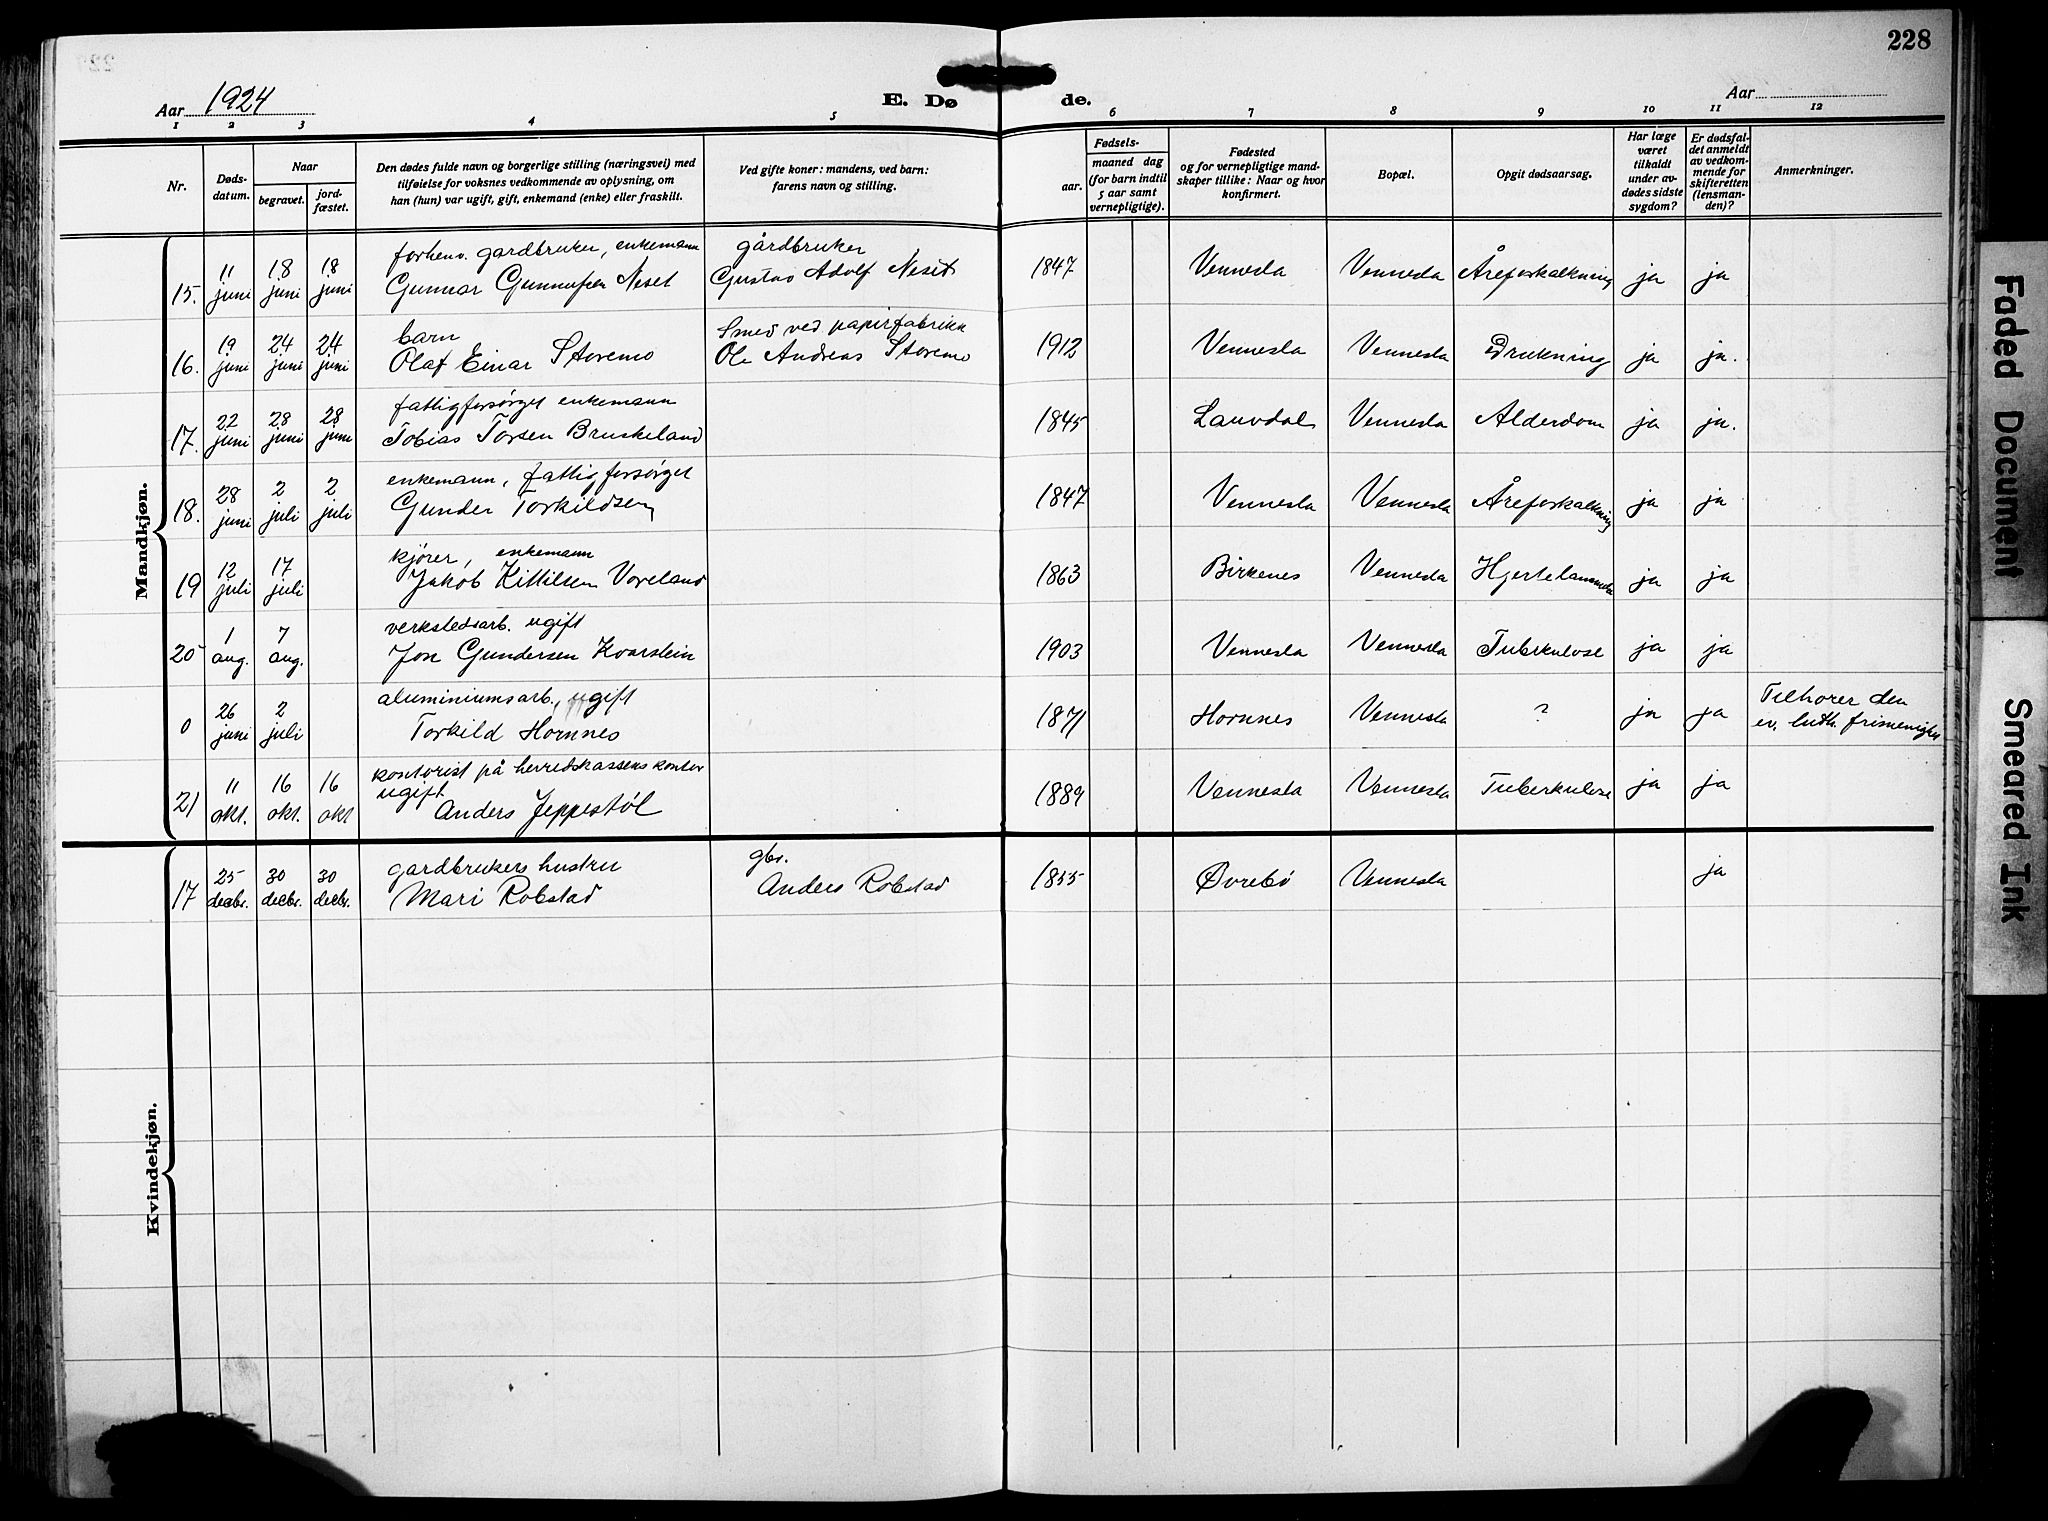 228
Aar 1924
E. Dø de.
Aar
1 2 3 4 5 6 7 8 9 10 11 12
Nr.
Døds-
datum.
Naar
begravet.
jord-
fæstet.
Den dødes fulde navn og borgerlige stilling (næringsvei) med
tilføielse for voksnes vedkommende av oplysning, om
han (hun) var ugift, gift, enkemand (enke) eller fraskilt.
Ved gifte koner: mandens, ved barn:
farens navn og stilling.
Fødsels-
aar.
maaned dag
(for barn indtil
5 aar samt
vernepligtige).
Fødested
og for vernepligtige mand-
skaper tillike: Naar og hvor
konfirmert.
Bopæl.
Opgit dødsaarsag.
Har læge
været
tilkaldt
under av-
dødes sidste
sygdom?
Er dødsfal-
det anmeldt
av vedkom-
mende for
skifteretten
(lensman-
den)?
Anmerkninger.
Mandkjøn.
forhenv. gardbruker, enkemann gårdbruker
15. 11 juni 18 juni 18 juni Gunnar Gunnufsen Neset Gustav Adolf Neset 1847 Vennesla Vennesla Åreforkalkning ja ja
barn Smed ved papirfabrikk
16. 19 juni 24 juni 24 juni Olaf Einar Storemo Ole Andreas Storemo 1912 Vennesla Vennesla Drukning ja ja.
fattigforsørget enkemann
17. 22 juni 28 juni 28 juni Tobias Torsen Bruskeland 1845 Lauvdal Vennesla Alderdom ja ja.
enkemann, fattigforsørget
18. 28 juni 2 juli 2 juli Gunder Torkildsen 1847 Vennesla Vennesla Åreforkalkning ja ja
kjører, enkemann
19 12 juli 17 juli Jakob Kittilsen Voreland 1863 Birkenes Vennesla Hjertelammelse ja ja
verkstedsarb. ugift
20 1 aug. 7 aug. Jon Gundersen Kvarstein 1903 Vennesla Vennesla Tuberkulose ja ja
aluminiumsarb., ugift
0 26 juni 2 juli Torkild Hornnes 1871 Hornnes Vennesla ? ja ja Tilhører den
ev. luth. frimenighet
kontorist på herredskassens kontor
ugift
21 11 okt. 16 okt. 16 okt Anders Jeppestøl 1889 Vennesla Vennesla Tuberkulose ja ja
Kvindekjøn.
gardbrukers hustru gbr.
17 25 decbr. 30 decbr. 30 decbr. Mari Robstad Anders Robstad 1855 Øvrebö Vennesla ja
Faded Document
Smeared Ink